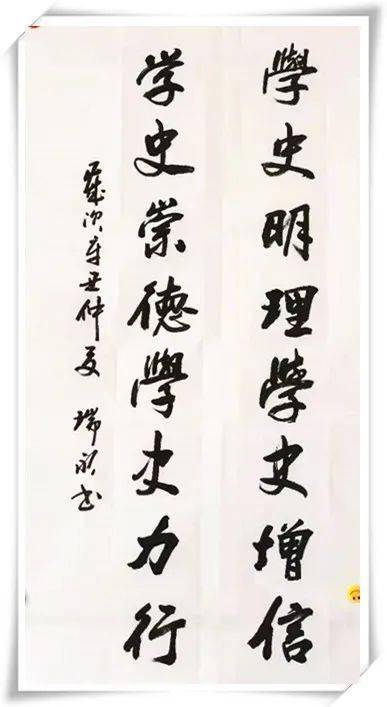 學史明理學史增信
学史崇德學史力行
歲次辛丑仲夏 瑞书